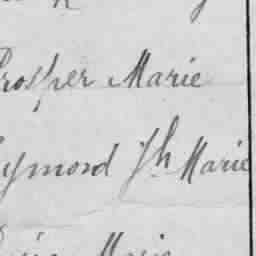 rosper Marie
aymond Jh Marie
Marie